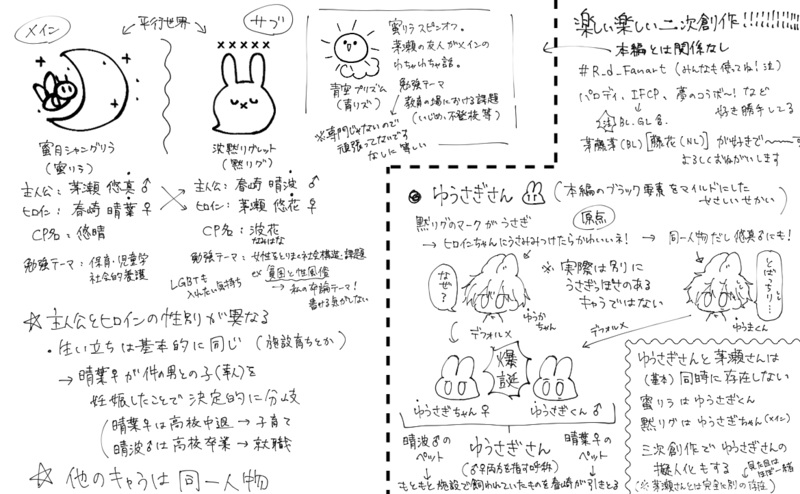 メイン
平行世界
サブ
蜜月シャングリラ
(蜜リラ)
主人公: 茅瀬 悠真 ♂
ヒロイン: 春崎 晴葉 ♀
CP名: 悠晴
勉強テーマ: 保育・児童学
社会的養護
×××××
沈黙リグレット
(黙リグ)
主人公: 春崎 晴波 ♂
ヒロイン: 茅瀬 悠花 ♀
CP名: 波花
なみはな
勉強テーマ: 女性をとりまく社会構造・課題
LGBTも
入れたい気持ち
ex 貧困と性風俗
→ 私の卒論テーマ!
書ける気がしない
☆ 主人公とヒロインの性別が異なる
・生い立ちは基本的に同じ (施設育ちとか)
→ 晴葉が件の男との子()を
妊娠したことで決定的に分岐
(晴葉♀は高校中退 → 子育て
晴波♂は高校卒業 → 就職
☆ 他のキャラは同一人物
青空プリズム
(青リズ)
蜜リラスピンオフ。
茅瀬の友人がメインの
わちゃわちゃ話。
勉強テーマ
教育の場における課題
(いじめ、不登校等)
※専門じゃないので
頑張ってないです
なしに等しい
楽しい楽しい二次創作!!!!!!!!!
本編とは関係なし
#R_d_Fanart (みんなも使ってね!注)
パロディ、IFCP、夢のコラボ〜!など
好き勝手してる
注 BL、GL含。
[藤花(NL)]が好きで〜す
よろしくおねがいします
◎ ゆうさぎさん
(本編のブラック要素をマイルドにした
やさしいせかい)
黙リグのマークがうさぎ
原点
→ ヒロインちゃんにうさみみつけたらかわいいネ! → 同一人物だし悠真にも!
なぜ?
ゆうかちゃん
※ 実際は別に
うさぎっぽさのある
キャラではない
とばっちり…
ゆうまくん
デフォルメ
デフォルメ
爆誕
ゆうさぎちゃん♀
ゆうさぎくん♂
晴波♂の
ペット
ゆうさぎさん
(♂♀両方を指す呼称)
晴葉♀の
ペット
もともと施設で飼われていたものを春崎が引きとる
ゆうさぎさんと茅瀬さんは
(基本)同時に存在しない
蜜リラはゆうさぎくん
黙リグはゆうさぎちゃん(メイン)
三次創作でゆうさぎさんの
擬人化もする
見た目はほぼ一緒
(※茅瀬さんとは完全に別の存在)